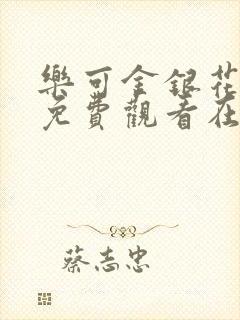 樂可金銀花
免費觀看在
蔡志忠